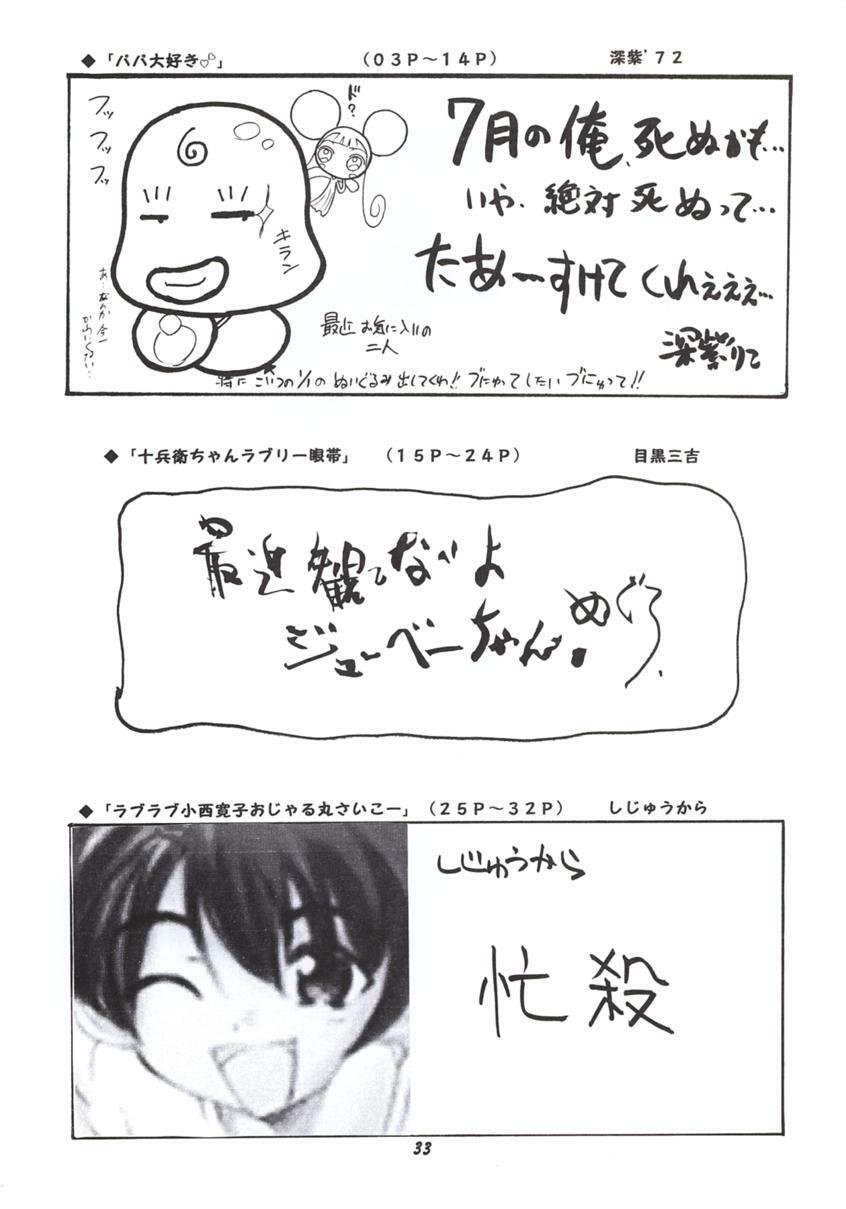 ◆「パパ大好き♡」 (03P～14P) 深紫'72
フッ
フッ
フッ
ド?
キラン
7月の俺、死ぬかも…
いや、絶対死ぬって…
たあーすけてくれぇぇぇ…
深紫りこ
最近お気に入りの
二人
特にこいつの1/1のぬいぐるみ出してくれ!!
◆「十兵衛ちゃんラブリー眼帯」 (15P～24P) 目黒三吉
最近観てないよ
ジューベーちゃん。めぐろ
◆「ラブラブ小西寛子おじゃる丸さいこー」 (25P～32P) しじゅうから
しじゅうから
忙殺
33